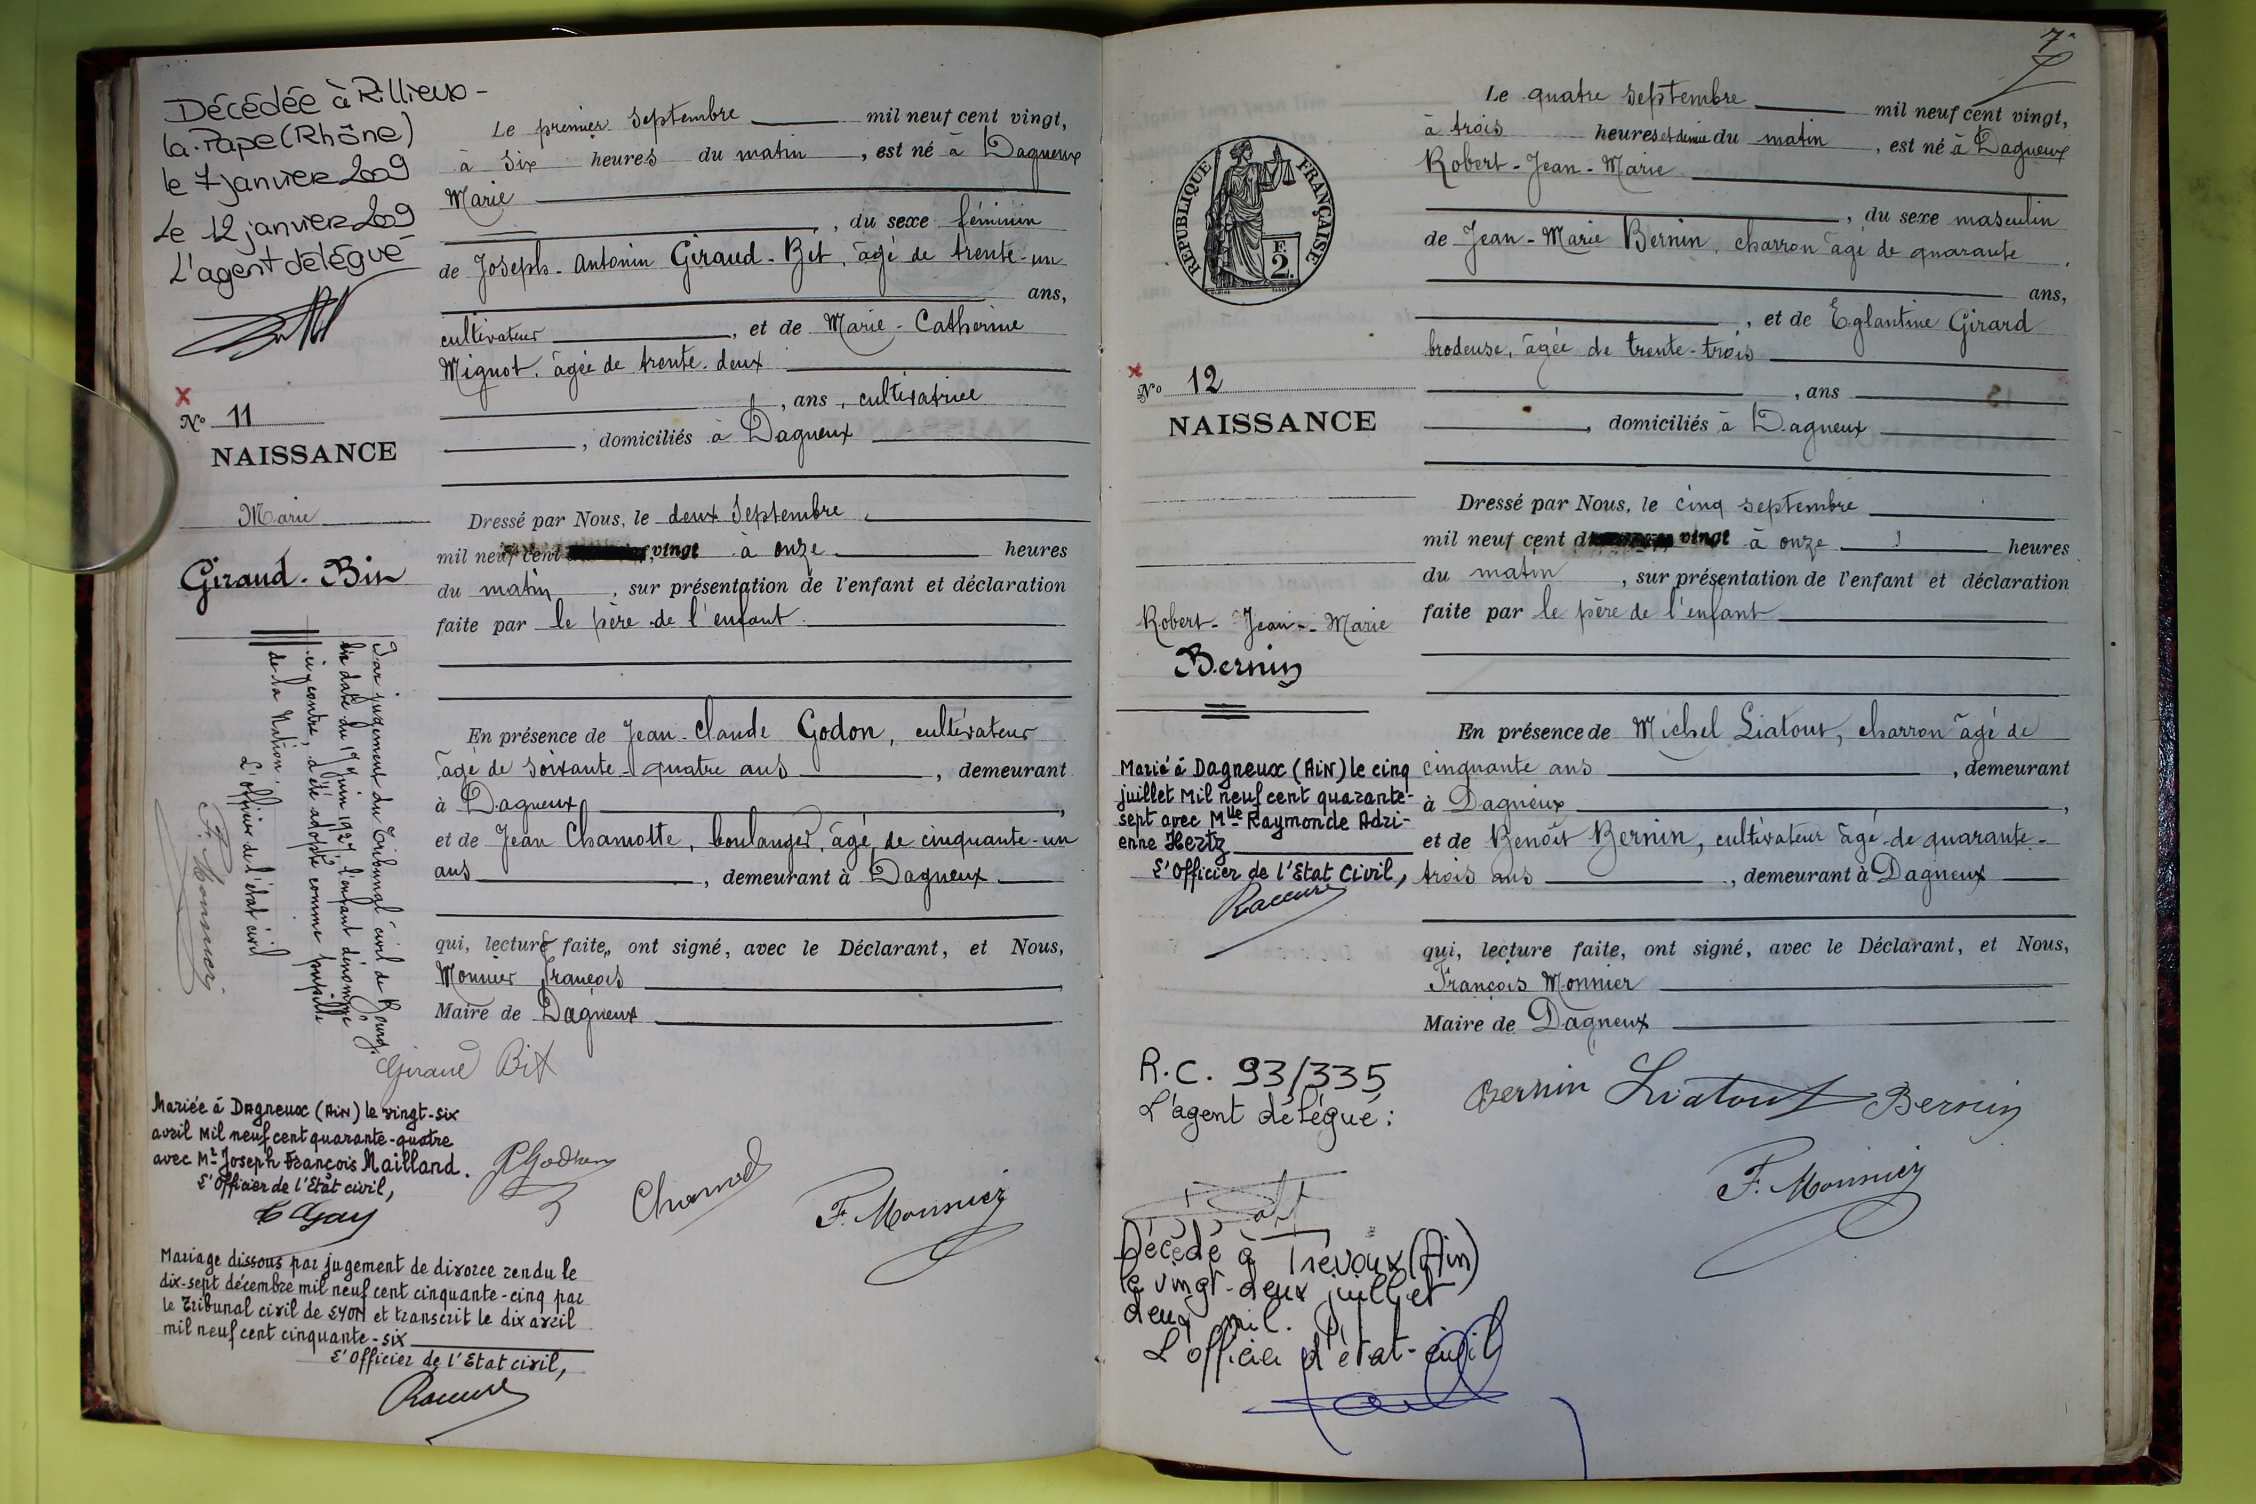 Décédée à Rillieux-
la-Pape (Rhône)
le 7 janvier 2009
Le 12 janvier 2009
L'agent délégué
No 11
NAISSANCE
Marie
Giraud-Bit
Par jugement du Tribunal civil de Bourg,
en date du 17 juin 1927, l'enfant dénommée
ci-contre, a été adoptée comme pupille
de la Nation.
L'officier de l'état civil
F. Monnier
Mariée à Dagneux (Ain) le vingt-six
avril mil neuf cent quarante-quatre
avec Mr Joseph François Mailland.
L'Officier de l'Etat civil,
Mariage dissous par jugement de divorce rendu le
dix-sept décembre mil neuf cent cinquante-cinq par
le Tribunal civil de LYON et transcrit le dix avril
mil neuf cent cinquante-six
L'Officier de l'Etat civil,
Le premier septembre mil neuf cent vingt,
à six heures du matin, est né à Dagneux
Marie
, du sexe féminin
de Joseph-Antonin Giraud-Bit, âgé de trente-un
ans,
cultivateur, et de Marie-Catherine
Mignot, âgée de trente-deux
, ans, cultivatrice
, domiciliés à Dagneux
Dressé par Nous, le deux Septembre
mil neuf cent vingt à onze heures
du matin, sur présentation de l'enfant et déclaration
faite par le père de l'enfant
En présence de Jean-Claude Godon, cultivateur
âgé de soixante-quatre ans, demeurant
à Dagneux,
et de Jean Chamotte, boulanger, âgé de cinquante-un
ans, demeurant à Dagneux
qui, lecture faite, ont signé, avec le Déclarant, et Nous,
Monnier François
Maire de Dagneux
Giraud Bit
F. Monnier
7
REPUBLIQUE FRANÇAISE
F.
2.
No 12
NAISSANCE
Robert-Jean-Marie
Bernin
Marié à Dagneux (Ain) le cinq
juillet Mil neuf cent quarante-
sept avec Mlle Raymonde Adri-
enne Hertz
L'Officier de l'Etat Civil,
R.C. 93/335
L'agent délégué:
Décédé à Trévoux (Ain)
le vingt-deux juillet
deux mil.
L'officier d'état-civil
Le quatre septembre mil neuf cent vingt,
à trois heures et demie du matin, est né à Dagneux
Robert-Jean-Marie
, du sexe masculin
de Jean-Marie Bernin, charron âgé de quarante
ans,
, et de Eglantine Girard
brodeuse, âgée de trente-trois
, ans
, domiciliés à Dagneux
Dressé par Nous, le cinq septembre
mil neuf cent vingt à onze heures
du matin, sur présentation de l'enfant et déclaration
faite par le père de l'enfant
En présence de Michel Liatout, charron âgé de
cinquante ans, demeurant
à Dagneux,
et de Benoît Bernin, cultivateur âgé de quarante-
trois ans, demeurant à Dagneux
qui, lecture faite, ont signé, avec le Déclarant, et Nous,
François Monnier
Maire de Dagneux
Bernin Liatout Bernin
F. Monnier